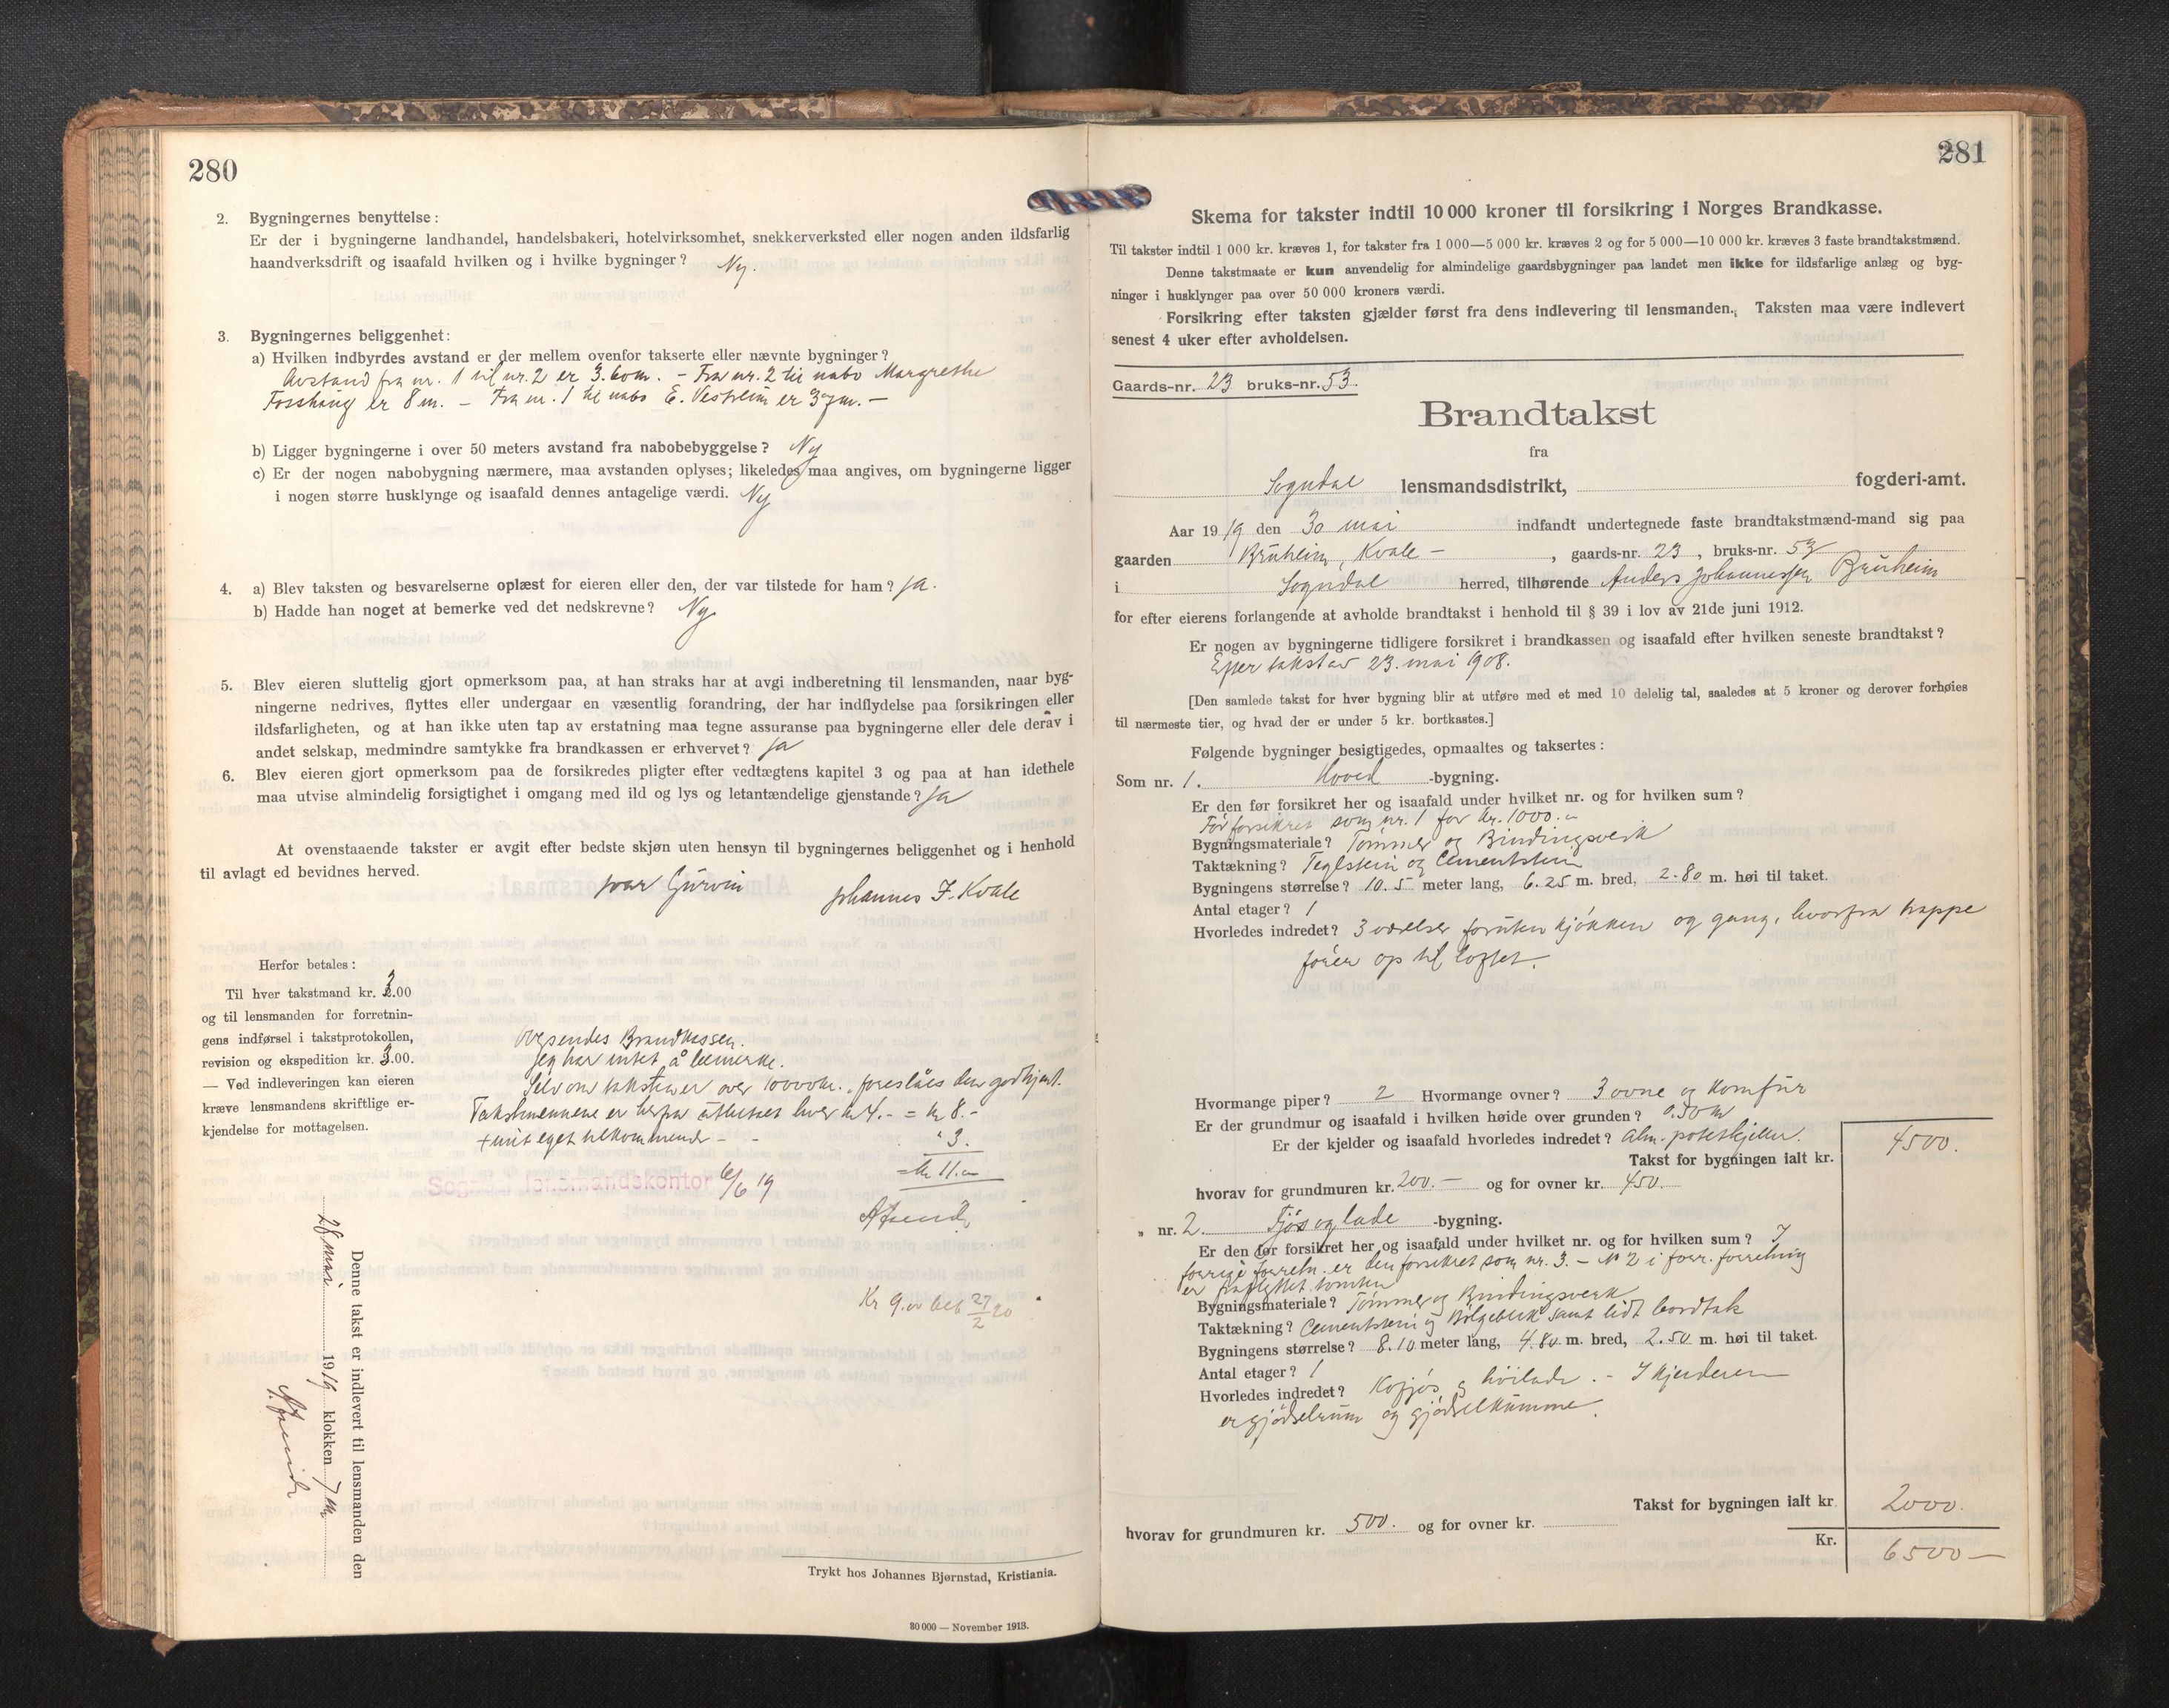 280
2. Bygningernes benyttelse:
Er der i bygningerne landhandel, handelsbakeri, hotelvirksomhet, snekkerverksted eller nogen anden ildsfarlig
haandverksdrift og isaafald hvilken og i hvilke bygninger? Ny.
3. Bygningernes beliggenhet:
a) Hvilken indbyrdes avstand er der mellem ovenfor takserte eller nævnte bygninger?
Avstand fra nr. 1 til nr. 2 er 3.60m. - Fra nr. 2 til nabo Margrethe
Fosshaug er 8 m. - Fra nr. 1 til nabo E. Vestreim er 37m. -
b) Ligger bygningerne i over 50 meters avstand fra nabobebyggelse? Ny
c) Er der nogen nabobygning nærmere, maa avstanden oplyses; likeledes maa angives, om bygningerne ligger
i nogen større husklynge og isaafald dennes antagelige værdi. Ny
4. a) Blev taksten og besvarelserne oplæst for eieren eller den, der var tilstede for ham? ja.
b) Hadde han noget at bemerke ved det nedskrevne? Ny
5. Blev eieren sluttelig gjort opmerksom paa, at han straks har at avgi indberetning til lensmanden, naar byg-
ningerne nedrives, flyttes eller undergaar en væsentlig forandring, der har indflydelse paa forsikringen eller
ildsfarligheten, og at han ikke uten tap av erstatning maa tegne assuranse paa bygningerne eller dele derav i
andet selskap, medmindre samtykke fra brandkassen er erhvervet? ja
6. Blev eieren gjort opmerksom paa de forsikredes pligter efter vedtægtens kapitel 3 og paa at han idethele
maa utvise almindelig forsigtighet i omgang med ild og lys og letantændelige gjenstande? ja
At ovenstaaende takster er avgit efter bedste skjøn uten hensyn til bygningernes beliggenhet og i henhold
til avlagt ed bevidnes herved.
Ivar Gurvin Johannes J. Kvale
Herfor betales:
Til hver takstmand kr. 3.00
og til lensmanden for forretnin-
gens indførsel i takstprotokollen,
revision og ekspedition kr. 3.00.
— Ved indleveringen kan eieren
kræve lensmandens skriftlige er-
kjendelse for mottagelsen.
Oversendes Brandkassen.
Jeg har intet å bemerke.
Selv om taksten er over 10000kr. foreslåes den godkjent.
Takstmennene er herfra utbetalt hver kr 4.- = kr 8.-
+ mit eget tilkommende - - " 3.
= kr 11.-
Sogndal lensmandskontor 6/6 19
Kr 9.00 bet 27/2 20
Denne takst er indlevert til lensmanden den
28 mai 1919 klokken 7 em
Trykt hos Johannes Bjørnstad, Kristiania.
30 000 — November 1913.
281
Skema for takster indtil 10 000 kroner til forsikring i Norges Brandkasse.
Til takster indtil 1 000 kr. kræves 1, for takster fra 1 000—5 000 kr. kræves 2 og for 5 000—10 000 kr. kræves 3 faste brandtakstmænd.
Denne takstmaate er kun anvendelig for almindelige gaardsbygninger paa landet men ikke for ildsfarlige anlæg og byg-
ninger i husklynger paa over 50 000 kroners værdi.
Forsikring efter taksten gjælder først fra dens indlevering til lensmanden. Taksten maa være indlevert
senest 4 uker efter avholdelsen.
Gaards-nr. 23 bruks-nr. 53.
Brandtakst
fra
Sogndal lensmandsdistrikt, fogderi-amt.
Aar 1919 den 30 mai indfandt undertegnede faste brandtakstmænd-mand sig paa
gaarden Bruheim, Kvale - , gaards-nr. 23, bruks-nr. 53
i Sogndal herred, tilhørende Anders Johannessen Bruheim
for efter eierens forlangende at avholde brandtakst i henhold til § 39 i lov av 21de juni 1912.
Er nogen av bygningerne tidligere forsikret i brandkassen og isaafald efter hvilken seneste brandtakst?
Efter takst av 23. mai 1908.
[Den samlede takst for hver bygning blir at utføre med et med 10 delelig tal, saaledes at 5 kroner og derover forhøies
til nærmeste tier, og hvad der er under 5 kr. bortkastes.]
Følgende bygninger besigtigedes, opmaaltes og taksertes:
Som nr. 1. Hoved -bygning.
Er den før forsikret her og isaafald under hvilket nr. og for hvilken sum?
Før forsikret som nr. 1 for kr. 1000.-
Bygningsmateriale? Tømmer og Bindingsverk
Taktækning? Teglstein og Cementstein
Bygningens størrelse? 10.5 meter lang, 6.25 m. bred, 2.80 m. høi til taket.
Antal etager? 1
Hvorledes indredet? 3 værelser foruten kjøkken og gang, hvorfra trappe
fører op til loftet.
Hvormange piper? 2 Hvormange ovner? 3 ovne og komfur
Er der grundmur og isaafald i hvilken høide over grunden? 0.50 m
Er der kjelder og isaafald hvorledes indredet? Alm. potetkjeller.
Takst for bygningen ialt kr. 4500.
hvorav for grundmuren kr. 200.- og for ovner kr. 450.
„ nr. 2. Fjøs og lade -bygning.
Er den før forsikret her og isaafald under hvilket nr. og for hvilken sum? I
forrige forretn. er den forsikret som nr. 3. - Nr 2 i forr. forretning
er fraflyttet tomten
Bygningsmateriale? Tømmer og Bindingsverk
Taktækning? Cementstein og Bølgeblik samt lidt bordtak
Bygningens størrelse? 8.10 meter lang, 4.80 m. bred, 2.50 m. høi til taket.
Antal etager? 1
Hvorledes indredet? Kofjøs og høilade. - I kjelderen
er gjødselrum og gjødselkumme.
Takst for bygningen ialt kr. 2000.
hvorav for grundmuren kr. 500. og for ovner kr.
Kr. 6500 —